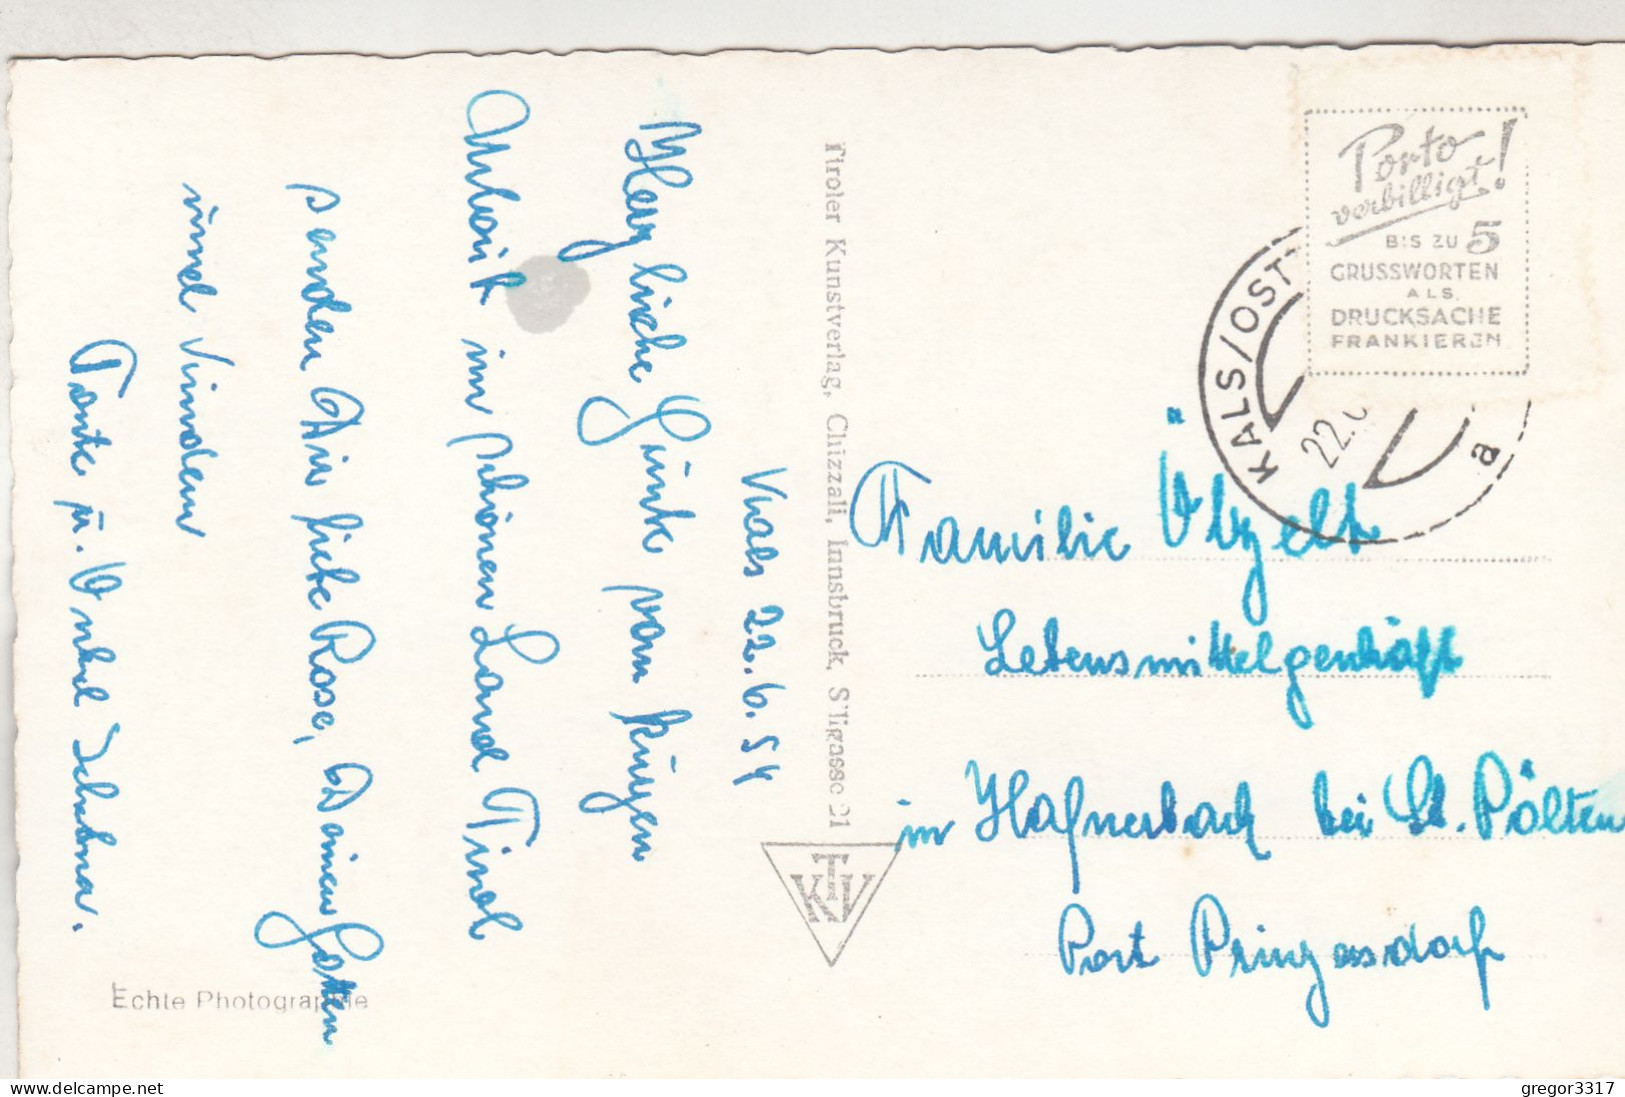 Kals 22.6.54
Herzliche Grüße vom kurzen
Urlaub im schönen Land Tirol
senden Dir liebe Rosa, Deinen Gatten
und Kindern
Tante u. Onkel
Tiroler Kunstverlag, Chizzali, Innsbruck, Sillgasse 21
TKV
Echte Photographie
Porto
verbilligt!
BIS ZU 5
GRUSSWORTEN
ALS
DRUCKSACHE
FRANKIEREN
KALS/OST
22.
a
Familie
Lebensmittelgeschäft
in Hafnerbach bei St. Pölten
Post Prinzersdorf
www.delcampe.net
gregor3317